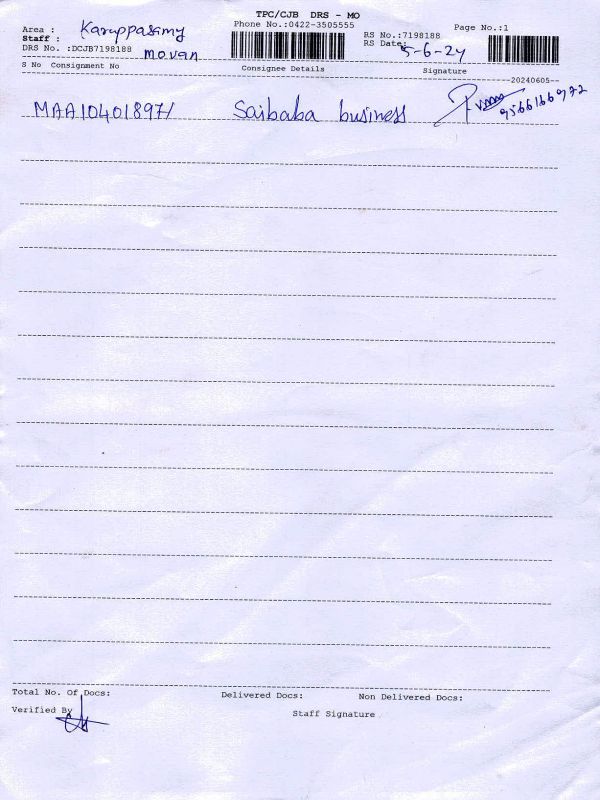 TPC/CJB DRS - MO
Phone No.:0422-3505555
Page No.:1
Area : Karuppasamy
Staff : movan
DRS No. :DCJB7198188
RS No.:7198188
RS Date: 5-6-24
S No Consignment No Consignee Details Signature
20240605
MAA104018971 Saibaba business 9566166972
Total No. Of Docs: Delivered Docs: Non Delivered Docs:
Verified By
Staff Signature